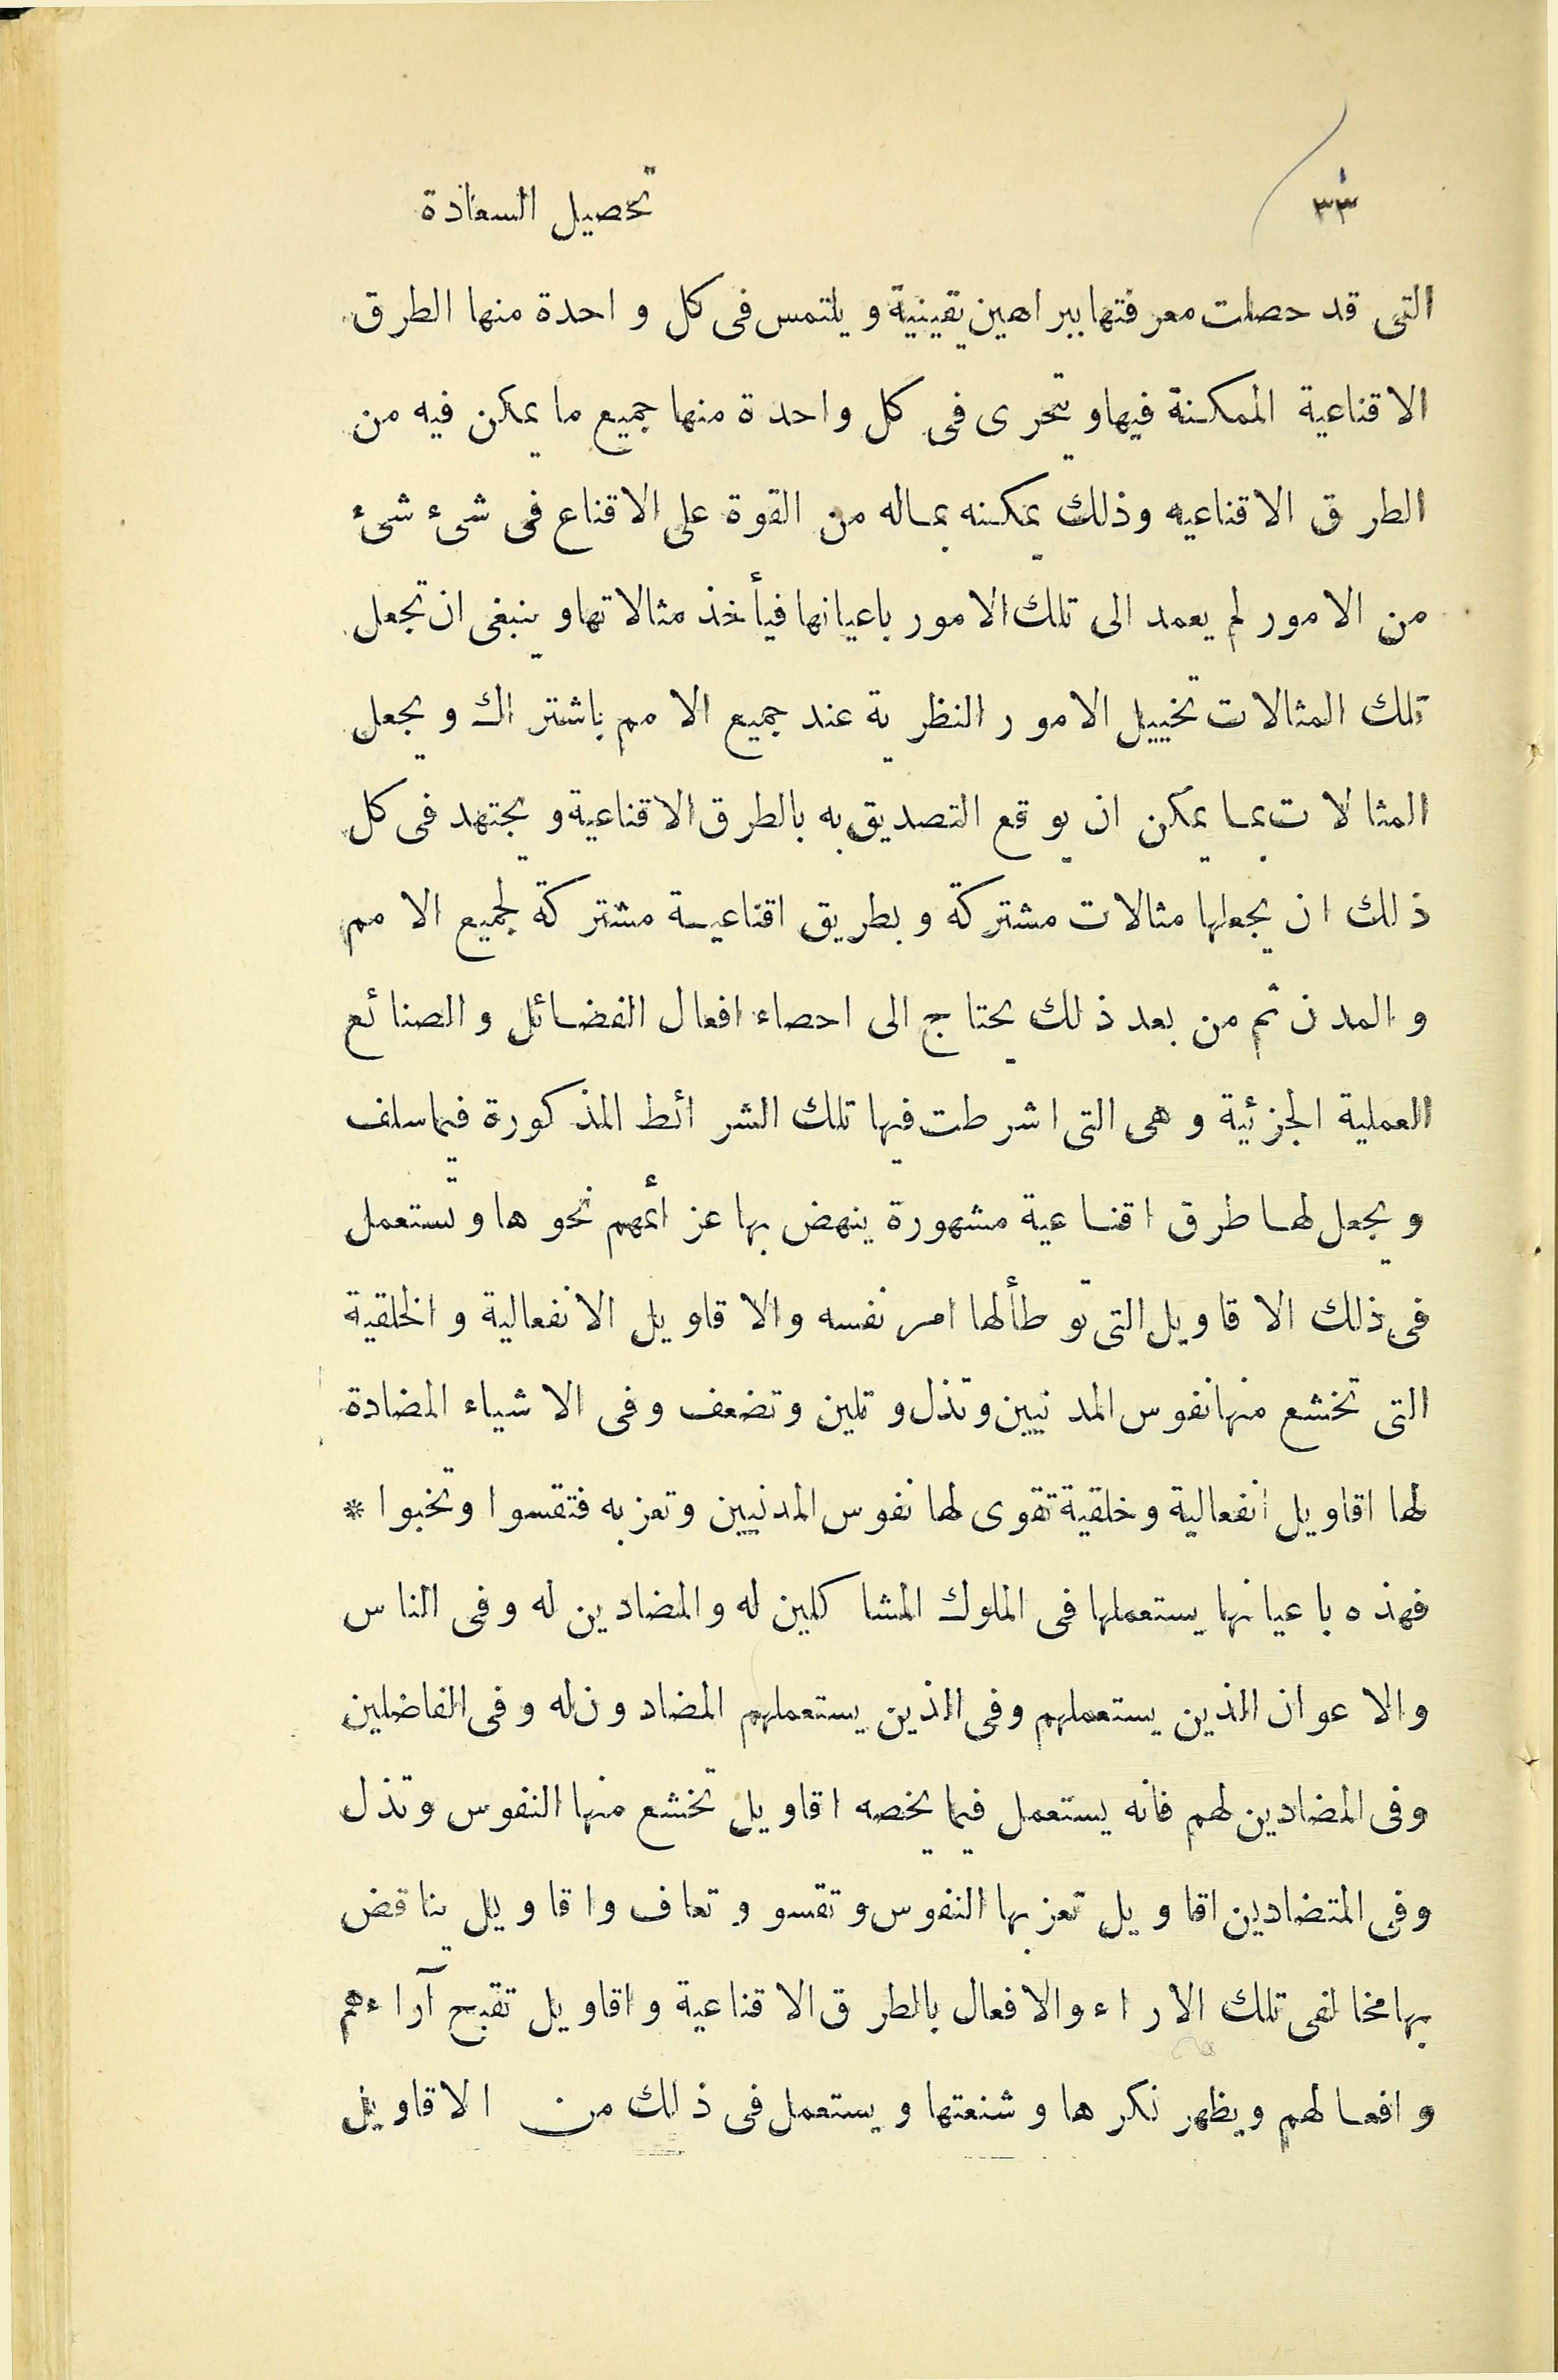 ٣٣ تحصيل السعادة
التى قد حصلت معرفتها ببراهين يقينية ويلتمس فى كل واحدة منها الطرق
الاقناعية الممكنة فيها ويتحرى فى كل واحدة منها جميع ما يمكن فيه من
الطرق الاقناعيه وذلك يمكنه بماله من القوة على الاقناع فى شىء شىء
من الامور لم يعمد الى تلك الامور باعيانها فيأخذ مثالاتها وينبغى ان تجعل
تلك المثالات تخييل الامور النظرية عند جميع الامم باشتراك ويجعل
المثالات بما يمكن ان يوقع التصديق به بالطرق الاقناعية ويجتهد فى كل
ذلك ان يجعلها مثالات مشتركة وبطريق اقناعية مشتركة لجميع الامم
والمدن ثم من بعد ذلك يحتاج الى احصاء افعال الفضائل والصنائع
العملية الجزئية وهى التى اشرطت فيها تلك الشرائط المذكورة فيما سلف
ويجعل لها طرق اقناعية مشهورة ينهض بها عزائمهم نحوها وتستعمل
فى ذلك الاقاويل التى توطألها امر نفسه والاقاويل الانفعالية والخلقية
التى تخشع منها نفوس المدنيين وتذل وتلين وتضعف وفى الاشياء المضادة
لها اقاويل انفعالية وخلقية تقوى لها نفوس المدنيين وتعز به فتقسوا وتخبوا *
فهذه باعيانها يستعملها فى الملوك المشاكلين له والمضادين له وفى الناس
والاعوان الذين يستعملهم وفى الذين يستعملهم المضادون له وفى الفاضلين
وفى المضادين لهم فانه يستعمل فيما يخصه اقاويل تخشع منها النفوس وتذل
وفى المتضادين اقاويل تعز بها النفوس وتقسو وتعاف واقاويل يناقض
بها مخالفى تلك الاراء والافعال بالطرق الاقناعية واقاويل تقبح آراءهم
وافعالهم ويظهر نكرها وشنعتها ويستعمل فى ذلك من الاقاويل